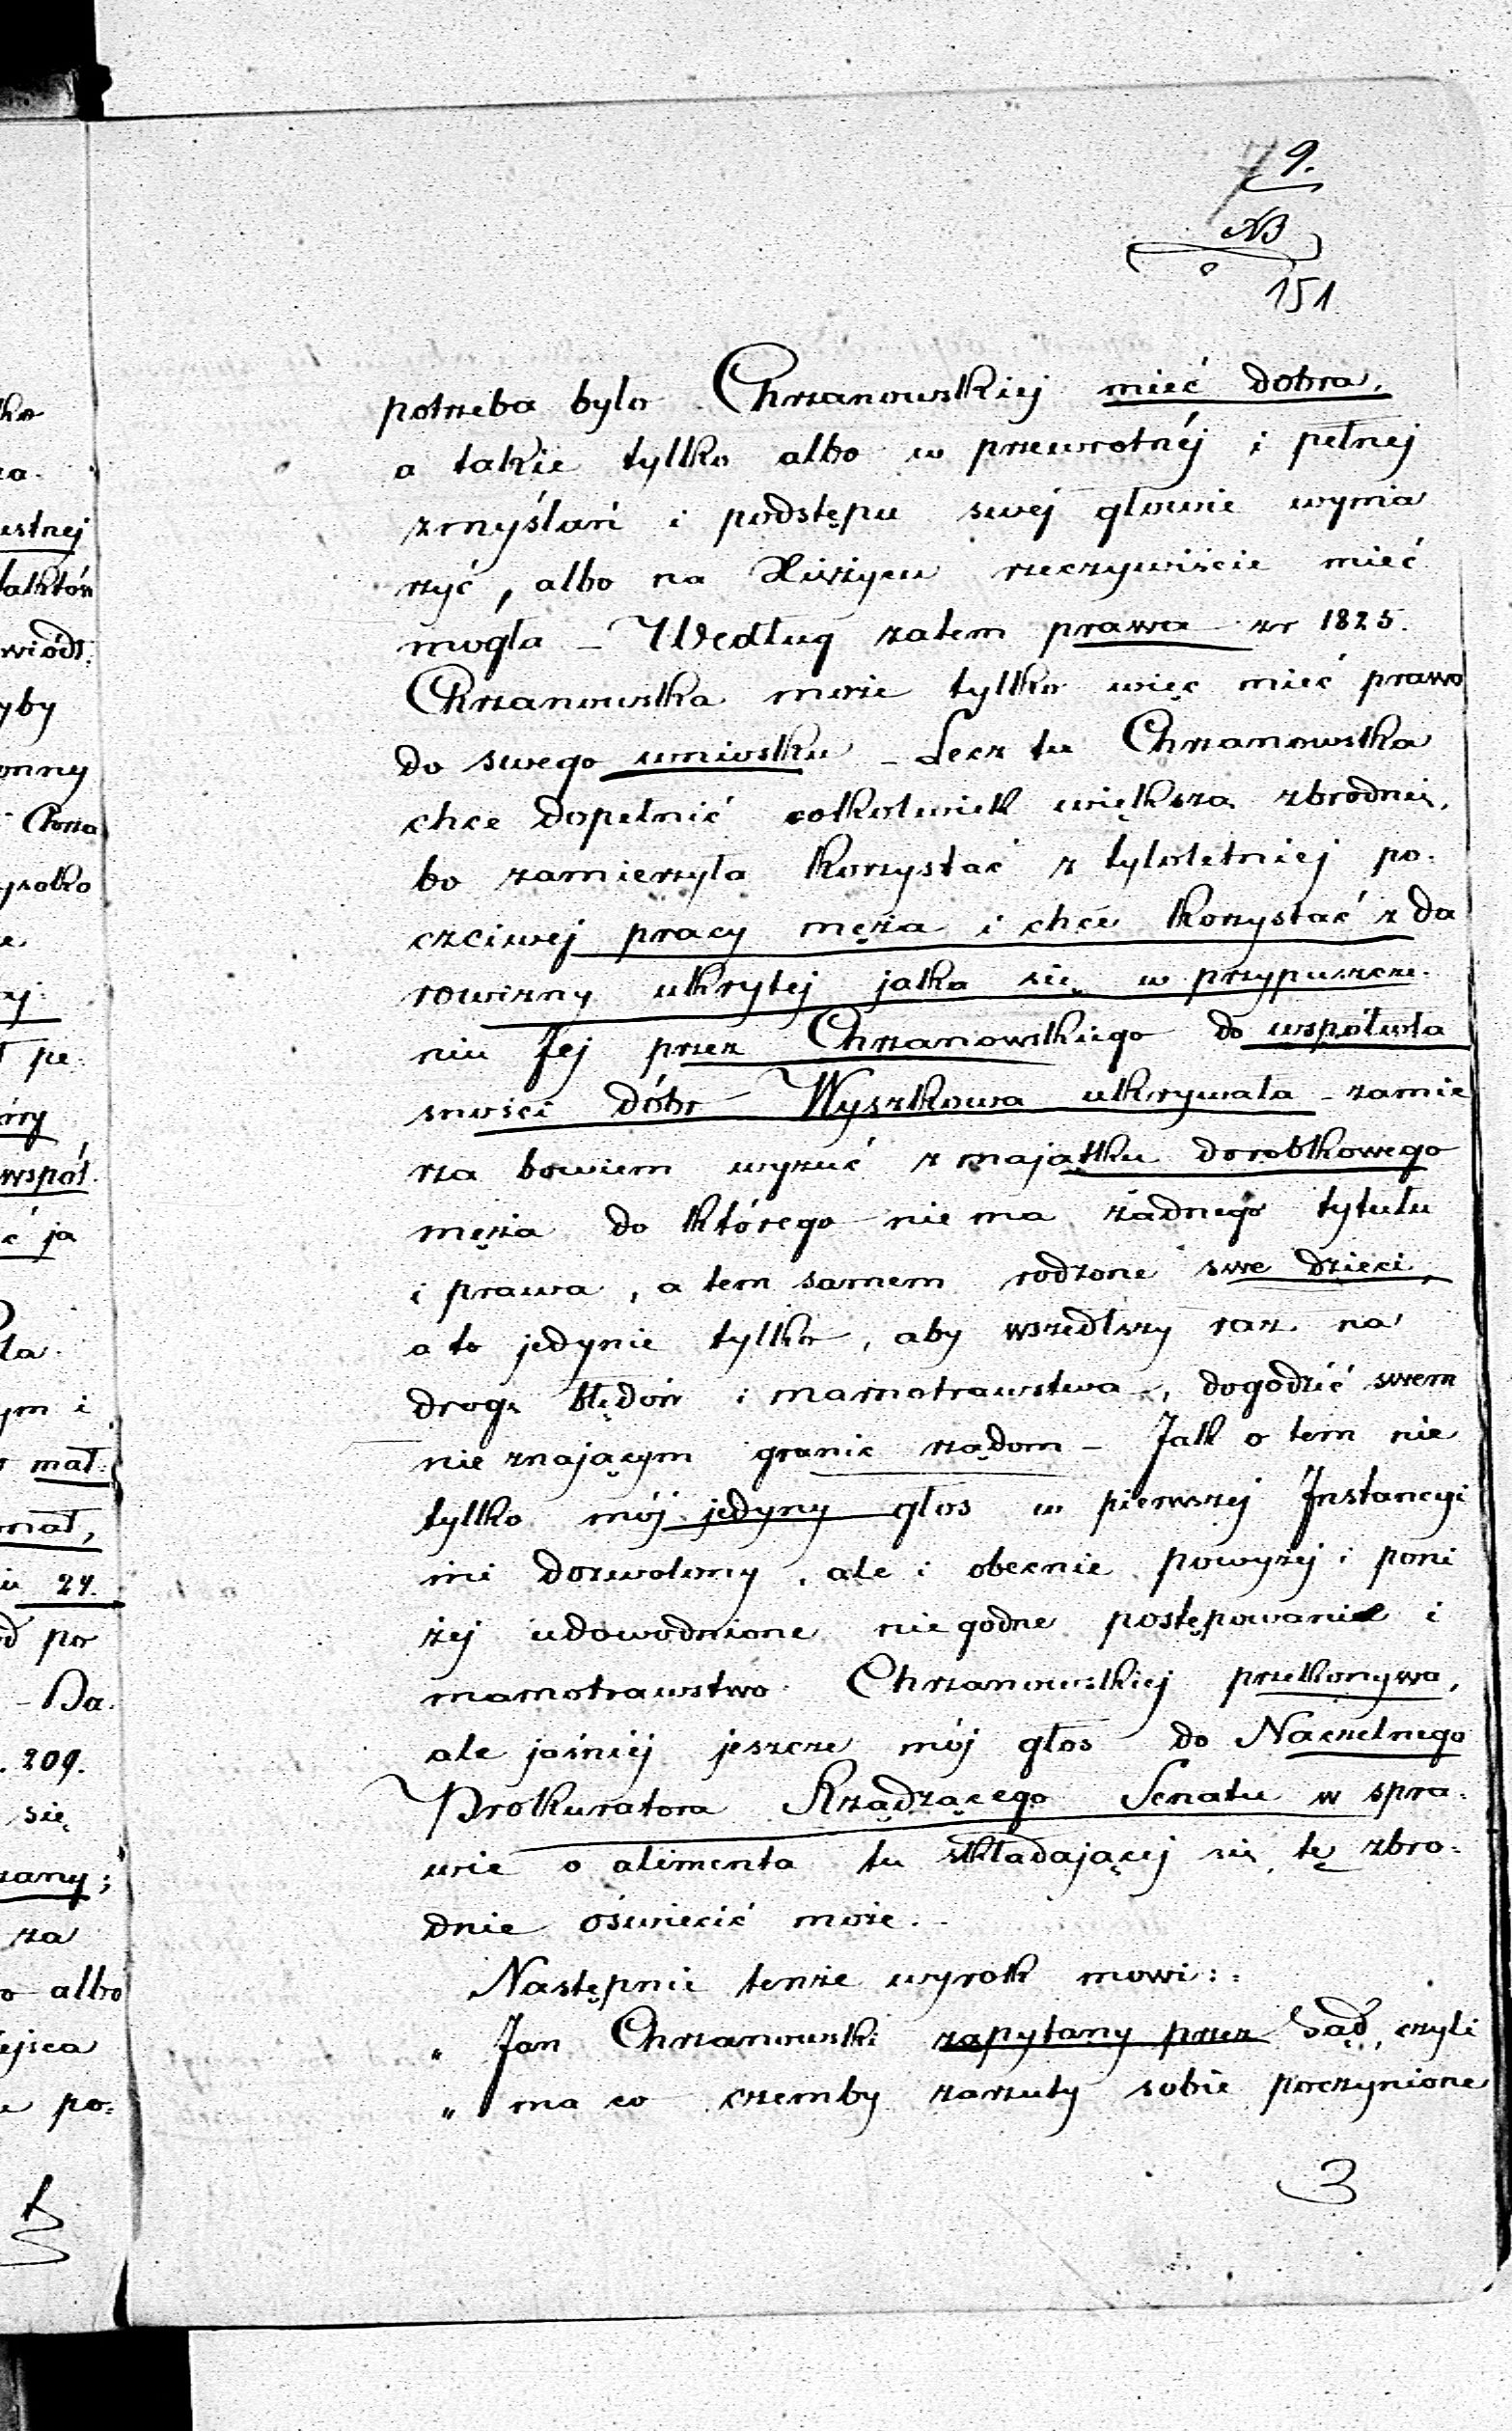 9.
NB
151
potrzeba bylo Chrzanowskiej mieć dobra,
a takie tylko albo w przewrotnéj i pełnej
zmyślań i podstępu swej głowie wyma
rzyć, albo na Xiężycu rzeczywiście mieć
mogła – Według zatem prawa zr 1825.
Chrzanowska może tylko więc mieć prawo
do swego wniosku – Lecz tu Chrzanowska
chce dopełnić cokolwiek większą zbrodnię,
bo zamierzyła korzystać z tyloletniej po:
czciwej pracy męża i chce korzystać z da
rowizny ukrytej jaka się w przypuszcze:
niu Jej przez Chrzanowskiego do współwła
sności dóbr Wyszkowa ukrywała – zamie
rza bowiem wyzuć z majątku dorobkowego
męża do którego nie ma żadnego tytułu
i prawa, a tem samem rodzone swe dzieci,
a to jedynie tylko, aby wszedłszy raz na
drogę błędów i marnotrawstwa, dogodzić swem
nie znającym granic rządom – Jak o tem nie
tylko mój jedyny głos w pierwszej Instancyi
mi dozwolony, ale i obecnie powyżej i poni
żej udowodnione niegodne postępowanie i
marnotrawstwo Chrzanowskiej przekonywa,
ale jaśniéj jeszcze mój głos do Naczelnego
Prokuratora Rządzącego Senatu w spra:
wie o alimenta tu składającej się, tę zbro:
dnie oświecić może.
Następnie tenże wyrok mowi::
" Jan Chrzanowski zapytany przez Sąd, czyli
" ma co czemby zarzuty sobie poczynione
3
ustnej
faktów
wiódł:
yby
omny
Chrza
ysoko
pe:
współ:
ć ja
ła
ym i
mał:
24.
po
– Da:
. 209.
się
zany;
za
o albo
ejsca
po: